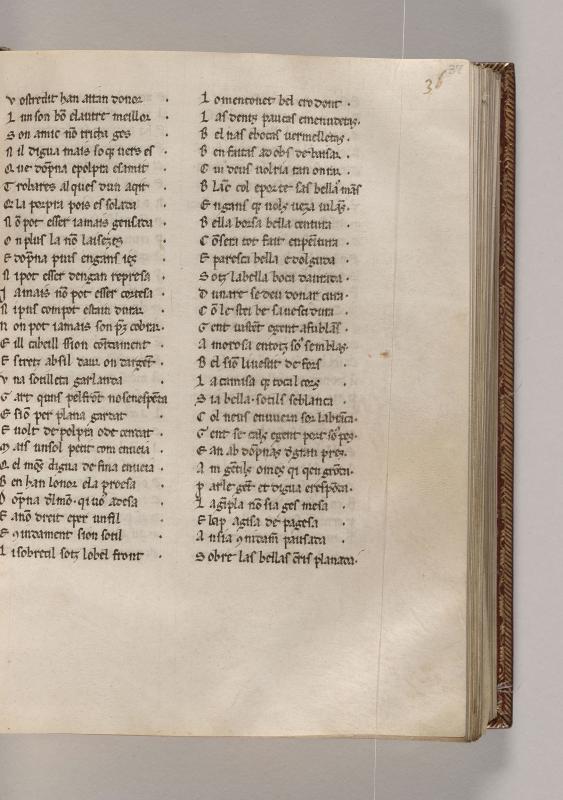 36
37
V ostredit han attan donor
L un son bõ elautre meillor
S on amic nõ tricha ges
N il digua mais so q̃ vers es
Q ue dõpna epolpra esamit
T robares al ques dun aqit
Q la porpra pois es solata
N õ pot esser iamais gensata
O n plus la nõ laisezes
E dõpna pius engans ies
N i pot esser dengan represa
J amais nõ pot esser cortesa
N i pus com pot estain durar
N on pot iamais son p̃z cobrar
E ill cabeill sion cõtament
E stretz ab fil daur on dargẽt
V na sotilleta garlanda
G art quns pel frõt no sen espõta
E siõ per plana gardat
E volt de polpra o de cendat
M ais un sol petit com enveia
Q el mõz digua de fina enveia
B en han lonor ela proesa
D õpna
E anõ dreit eper un fil
E iutdament sion sotil
L i sobrecil sotz lo bel front
L o mento net bel e rodont
L as denz paucas emenudetas
B el nas e boca vermelleta
B en faitas ad obs de baisar
C ui deus volria tan onrar
B lãc col e portet sas bellas mãs
E ngans
B ella borsa bella centura
C õsera tot fait enpẽtura
E paresca bella e dolguda
S otz la bella boca daurata
D unare se deu donar cura
C õ le stei be sa vestidura
G ent vistẽt egent afublãs
A morosa en totz sõ semblas
B el siõ li vestit de fors
L a camisa q̃ tocal cors
S ia bella sotils e blanca
C ol neus en uvern sor la brãca
G ent se cals egent port sõ pes
E an ab dõpnas
A m gẽtils omes
P arle gẽt et digua
L agẽpla nõ sia ges mesa
E l cap a gisa de pagesa
A n sia pausata
S obre las bellas cris planata